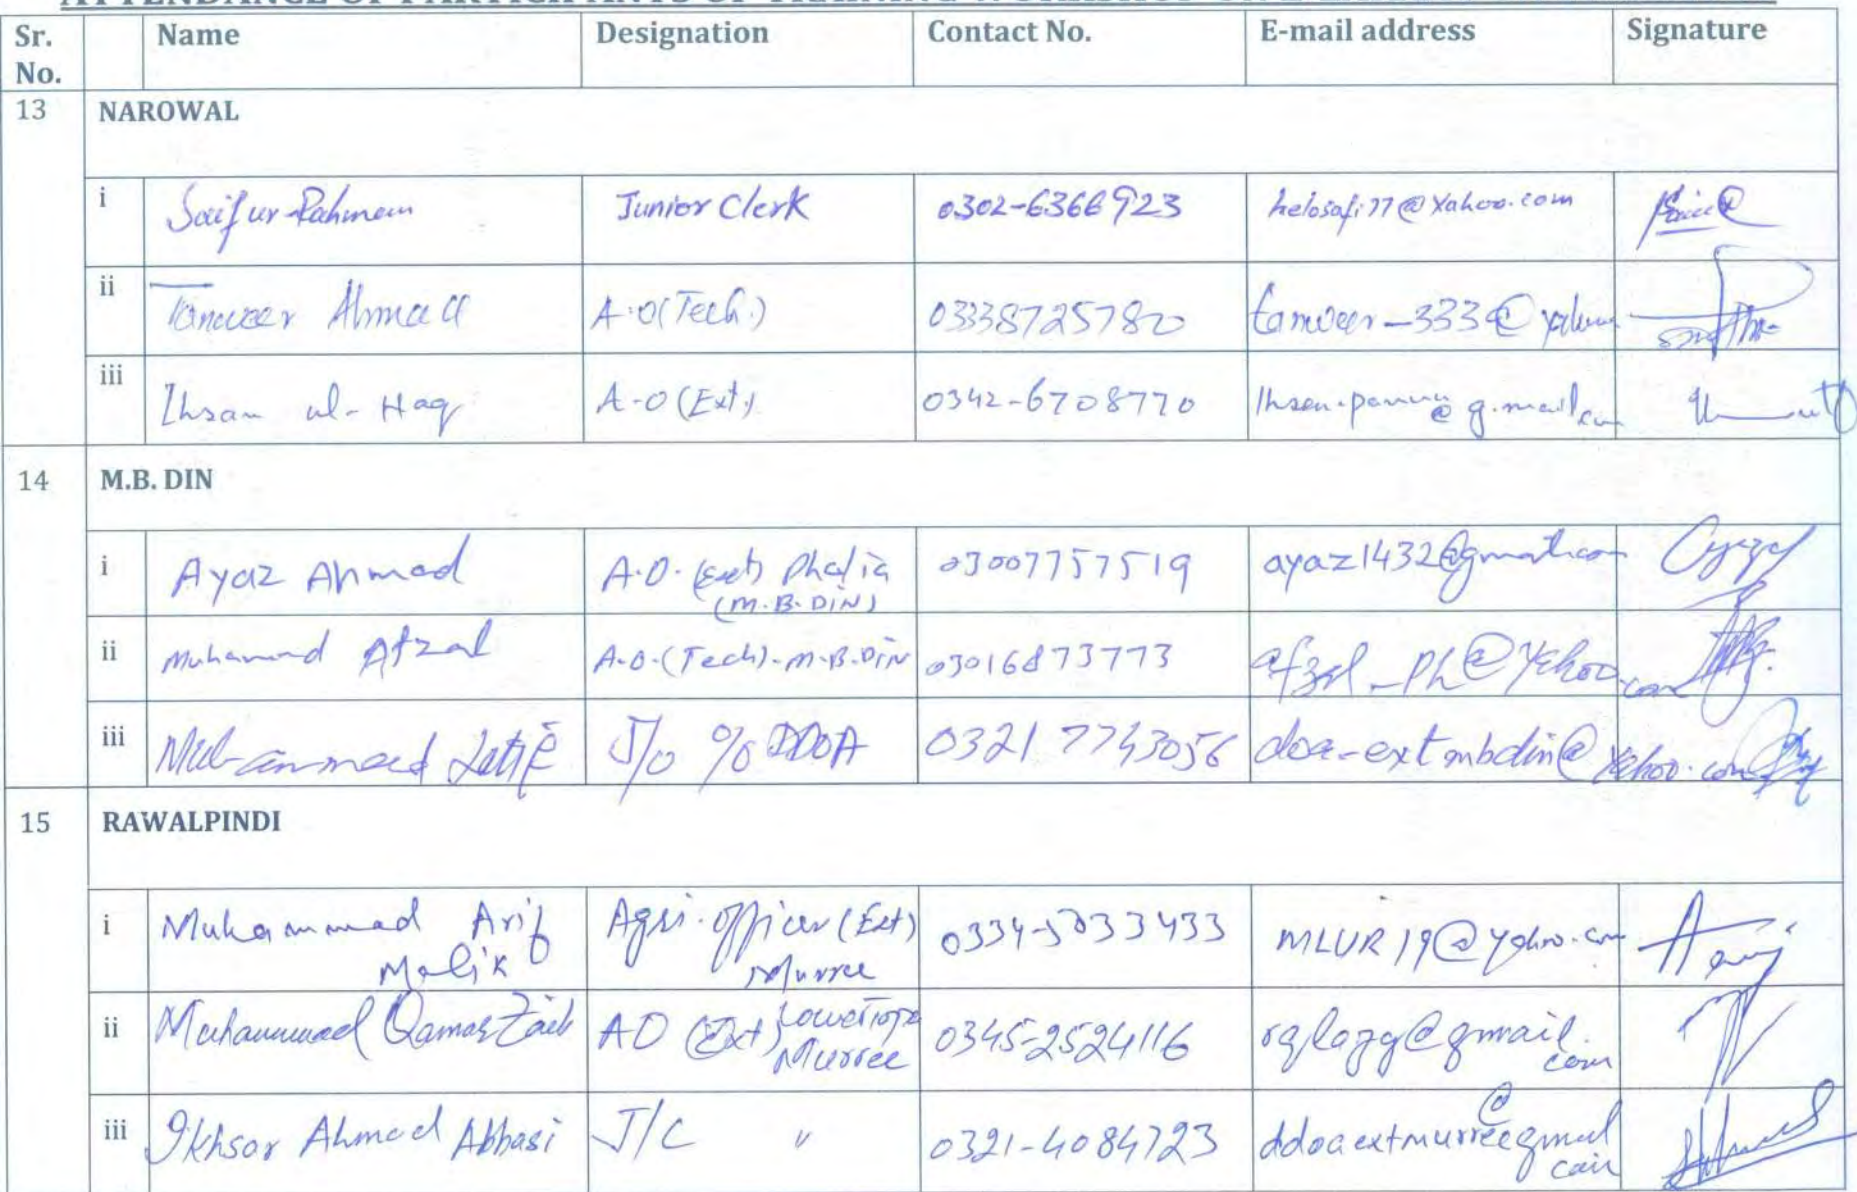 ATTENDANCE OF PARTICIPANTS OF TRAINING WORKSHOP ON
Sr. No. Name Designation Contact No. E-mail address Signature
13 NAROWAL
i Saif ur Rahmam Junior Clerk 0302-6366923 helosafi77@Yahoo.com
ii Tanveer Ahmad A.O(Tech.) 03338725780 tanveer-333@
iii Ihsan ul-Haq A-O(Ext.) 0342-6708770 @g.mail.com
14 M.B. DIN
i Ayaz Ahmad A.O.(Ext) Phalia 03007757519 ayaz1432@gmail.com
(M.B.DIN)
ii Muhammad Afzal A.O.(Tech)-M.B.DIN 03016873773 afzal_Ph@Yahoo.com
iii Muhammad Latif J/o %DDOA 0321 7743056 doa-extmbdin@Yahoo.com
15 RAWALPINDI
i Muhammad Arif Agri. Officer (Ext) 0334-5033433 MLUR19@yahoo.com
Malik Murree
ii Muhammad Qamar Zaib AO (Ext) Lower Topa 0345-2524116 @gmail.
Murree com
iii Ikhsar Ahmed Abbasi J/C " 0321-4084723 ddoaextmurree@gmail
com